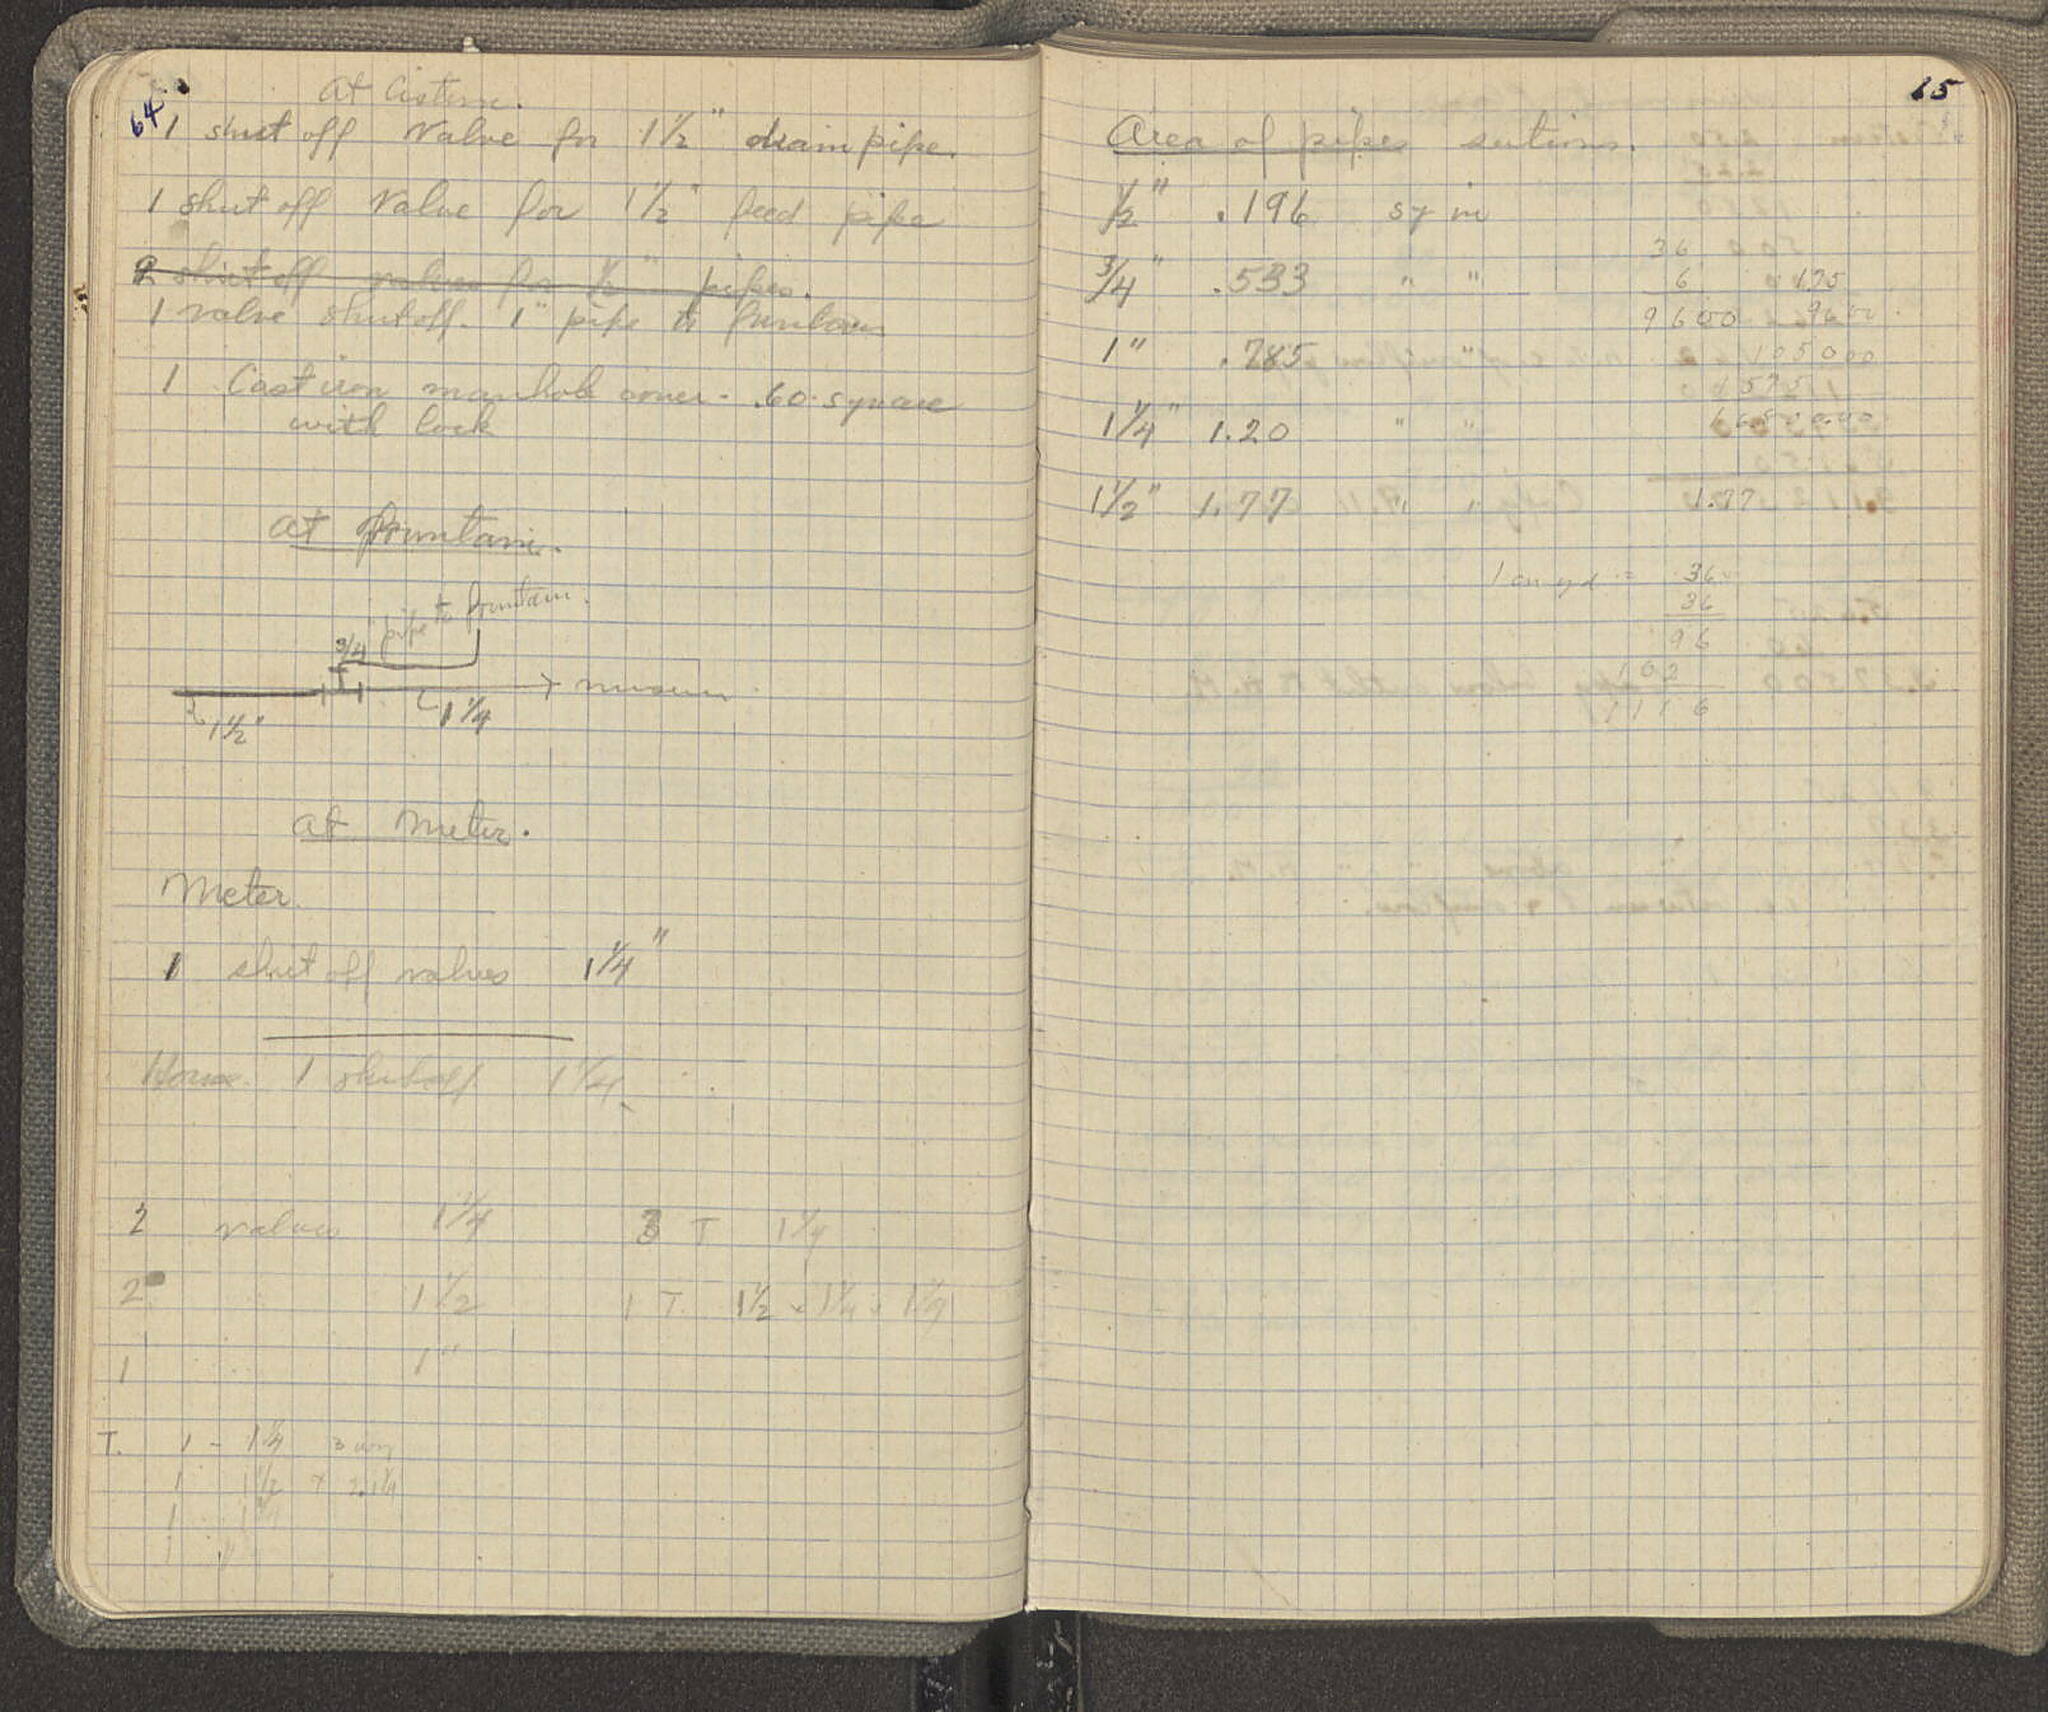 64
At Cistern.
1 shut off Valve for 1½" drain pipe.
1 shut off Valve for 1½" feed pipe
2 shut off valves for ½" pipes.
1 valve shut off. 1" pipe to fountain
1 Cast iron manhole cover - .60 square
with lock
At fountain.
¾" pipe to fountain.
museum
1½"
1¼
At Meter.
Meter.
1 shut off valves 1¼"
House. 1 shut off 1¼
2 valves 1¼ 3 T 1¼
2 1½ 1 T. 1½ x 1¼ x 1¼
1 1"
T. 1 - 1¼ 3 way
1 1½ + 2. 1¼
1
1
65
Area of pipes sections.
½" .196 sq in
¾" .533 " "
1" .785 "
1¼" 1.20 " "
1½" 1.77 " "
36
6 175
9600 9600
105000
1575
1.77
1 cu yd = 36
36
96
102
1116